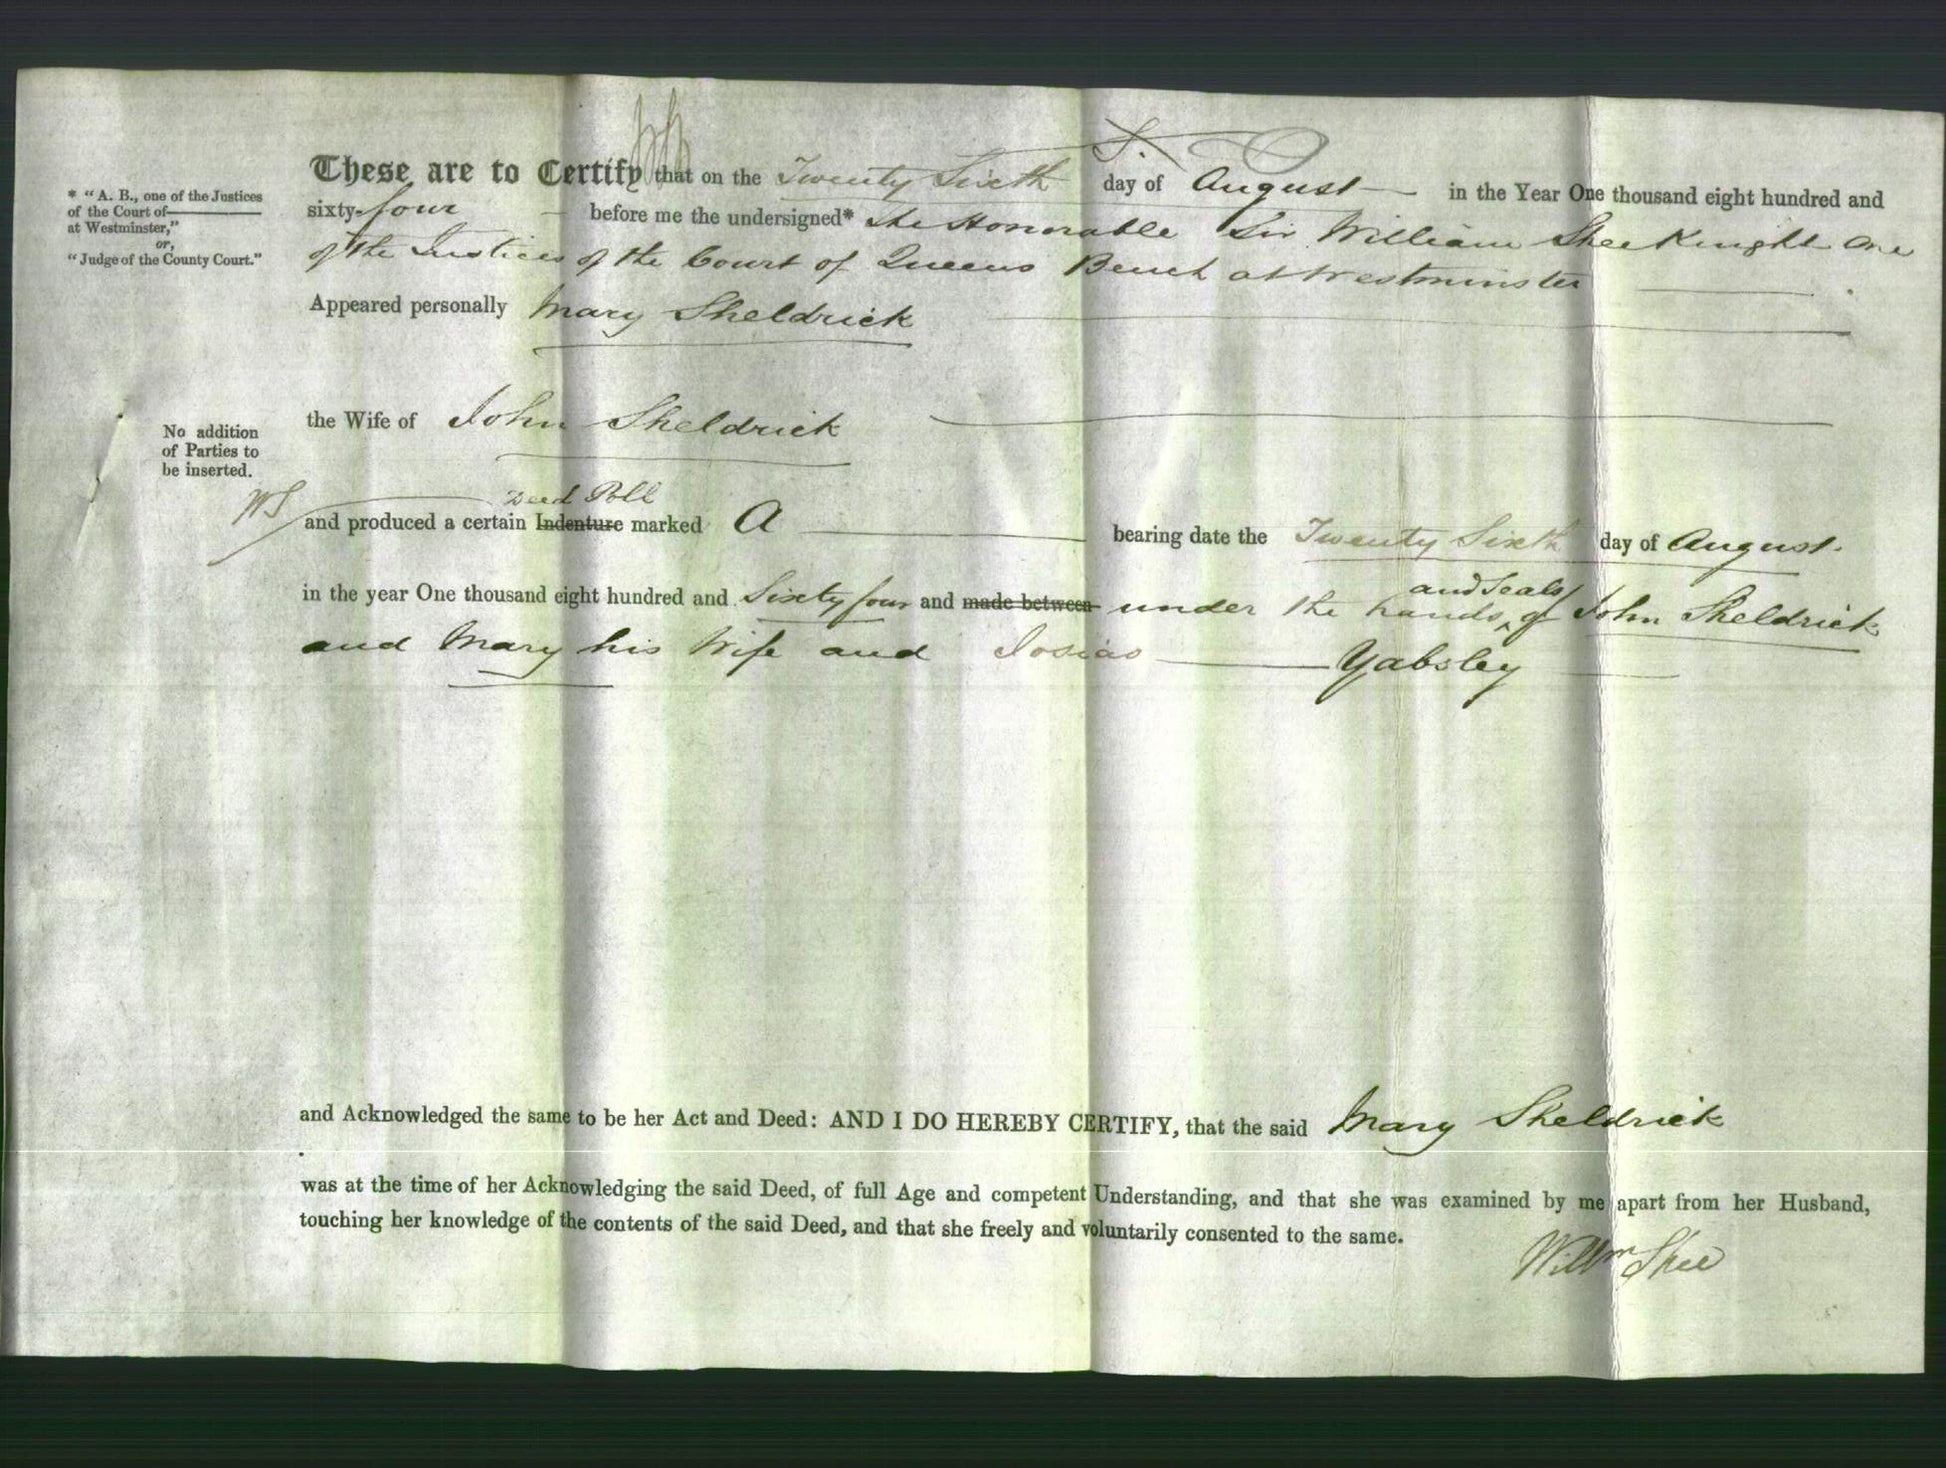 S.
These are to Certify that on the Twenty Sixth day of August in the Year One thousand eight hundred and
* "A. B., one of the Justices
of the Court of
at Westminster,"
or,
"Judge of the County Court."
sixty-four before me the undersigned* The Honorable Sir William Shee Knight One
of the Justices of the Court of Queens Bench at Westminster
Appeared personally Mary Sheldrick
the Wife of John Sheldrick
No addition
of Parties to
be inserted.
Deed Poll
WS and produced a certain Indenture marked A bearing date the Twenty Sixth day of August.
and Seals
in the year One thousand eight hundred and Sixty four and made between under the hands of John Sheldrick
and Mary his Wife and Josias Yabsley
and Acknowledged the same to be her Act and Deed: AND I DO HEREBY CERTIFY, that the said Mary Sheldrick
was at the time of her Acknowledging the said Deed, of full Age and competent Understanding, and that she was examined by me apart from her Husband,
touching her knowledge of the contents of the said Deed, and that she freely and voluntarily consented to the same.
Willm Shee